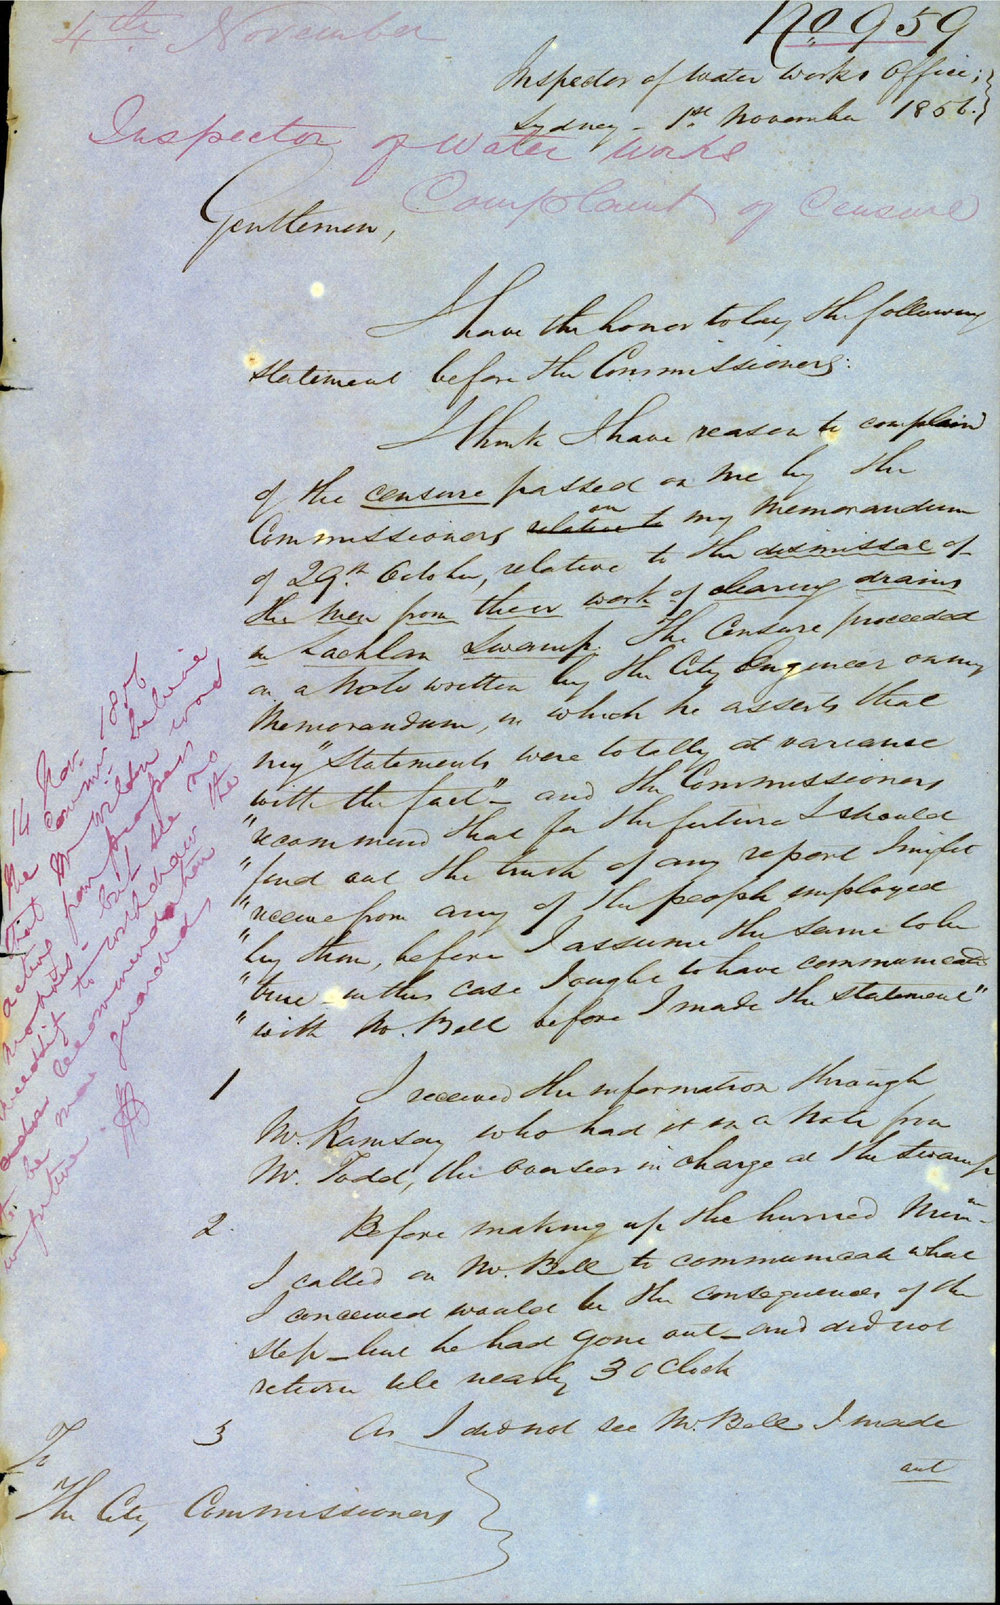 No 959
4th November
Inspector of Water Works Office;
Sydney - 1st November 1856.
Inspector of Water Works
Complaint of Censure
Gentlemen,
I have the honor to lay the following
statement before the Commissioners:
I think I have reason to complain
of the censure passed on me by the
Commissioners relative to on my Memorandum
of 29th October, relative to the dismissal of
the men from their work of clearing drains
in Lachlan Swamp. The Censure proceeded
on a Note written by the City Engineer on my
Memorandum, in which he asserts that
my "Statements were totally at variance
with the fact" - and the Commissioners
"recommend that for the future I should
"find out the truth of any report I might
"receive from any of the people employed
"by them, before I assume the same to be
"true - in this case I ought to have communicated
"with Mr. Bell before I made the statement"
1 I received the information through
Mr. Ramsay who had it in a Note from
Mr. Todd, the Overseer in charge at the Swamp
2. Before making up the hurried Mem
I called on Mr. Bell to communicate what
I conceived would be the consequences of the
step - but he had gone out - and did not
return till nearly 3 o Clock
3 As I did not see Mr. Bell I made
out
To
The City Commissioners
14 Nov. 1856
The Commrs. believe
that Mr Wilson
acting from proper
motives but see no
necessity to withdraw the
recommendation
to be more guarded
in future.